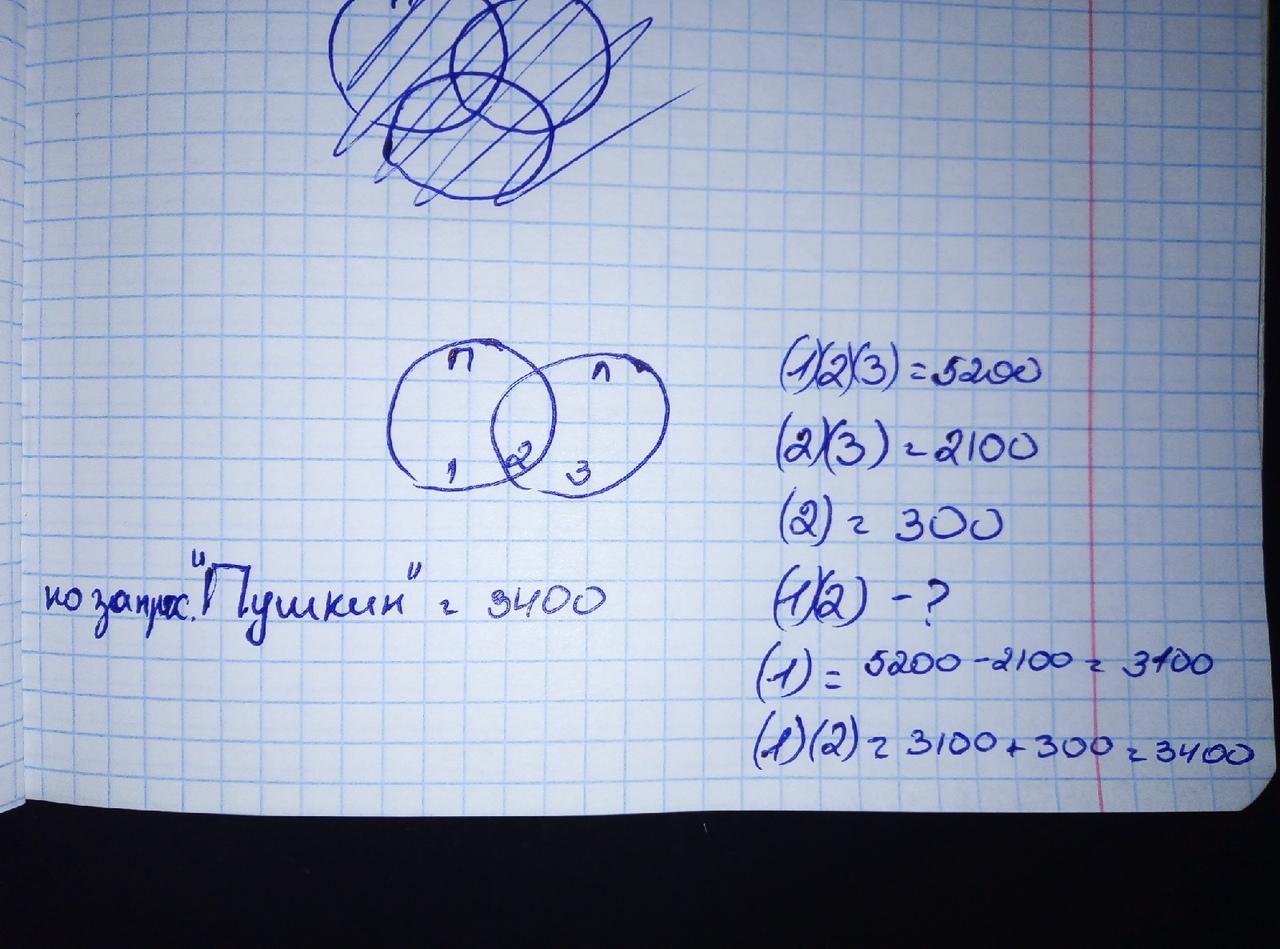 П Л
1 2 3
(1)(2)(3) = 5200
(2)(3) = 2100
(2) = 300
по запрос. "Пушкин" = 3400
(1)(2) - ?
(1) = 5200 - 2100 = 3100
(1)(2) = 3100 + 300 = 3400